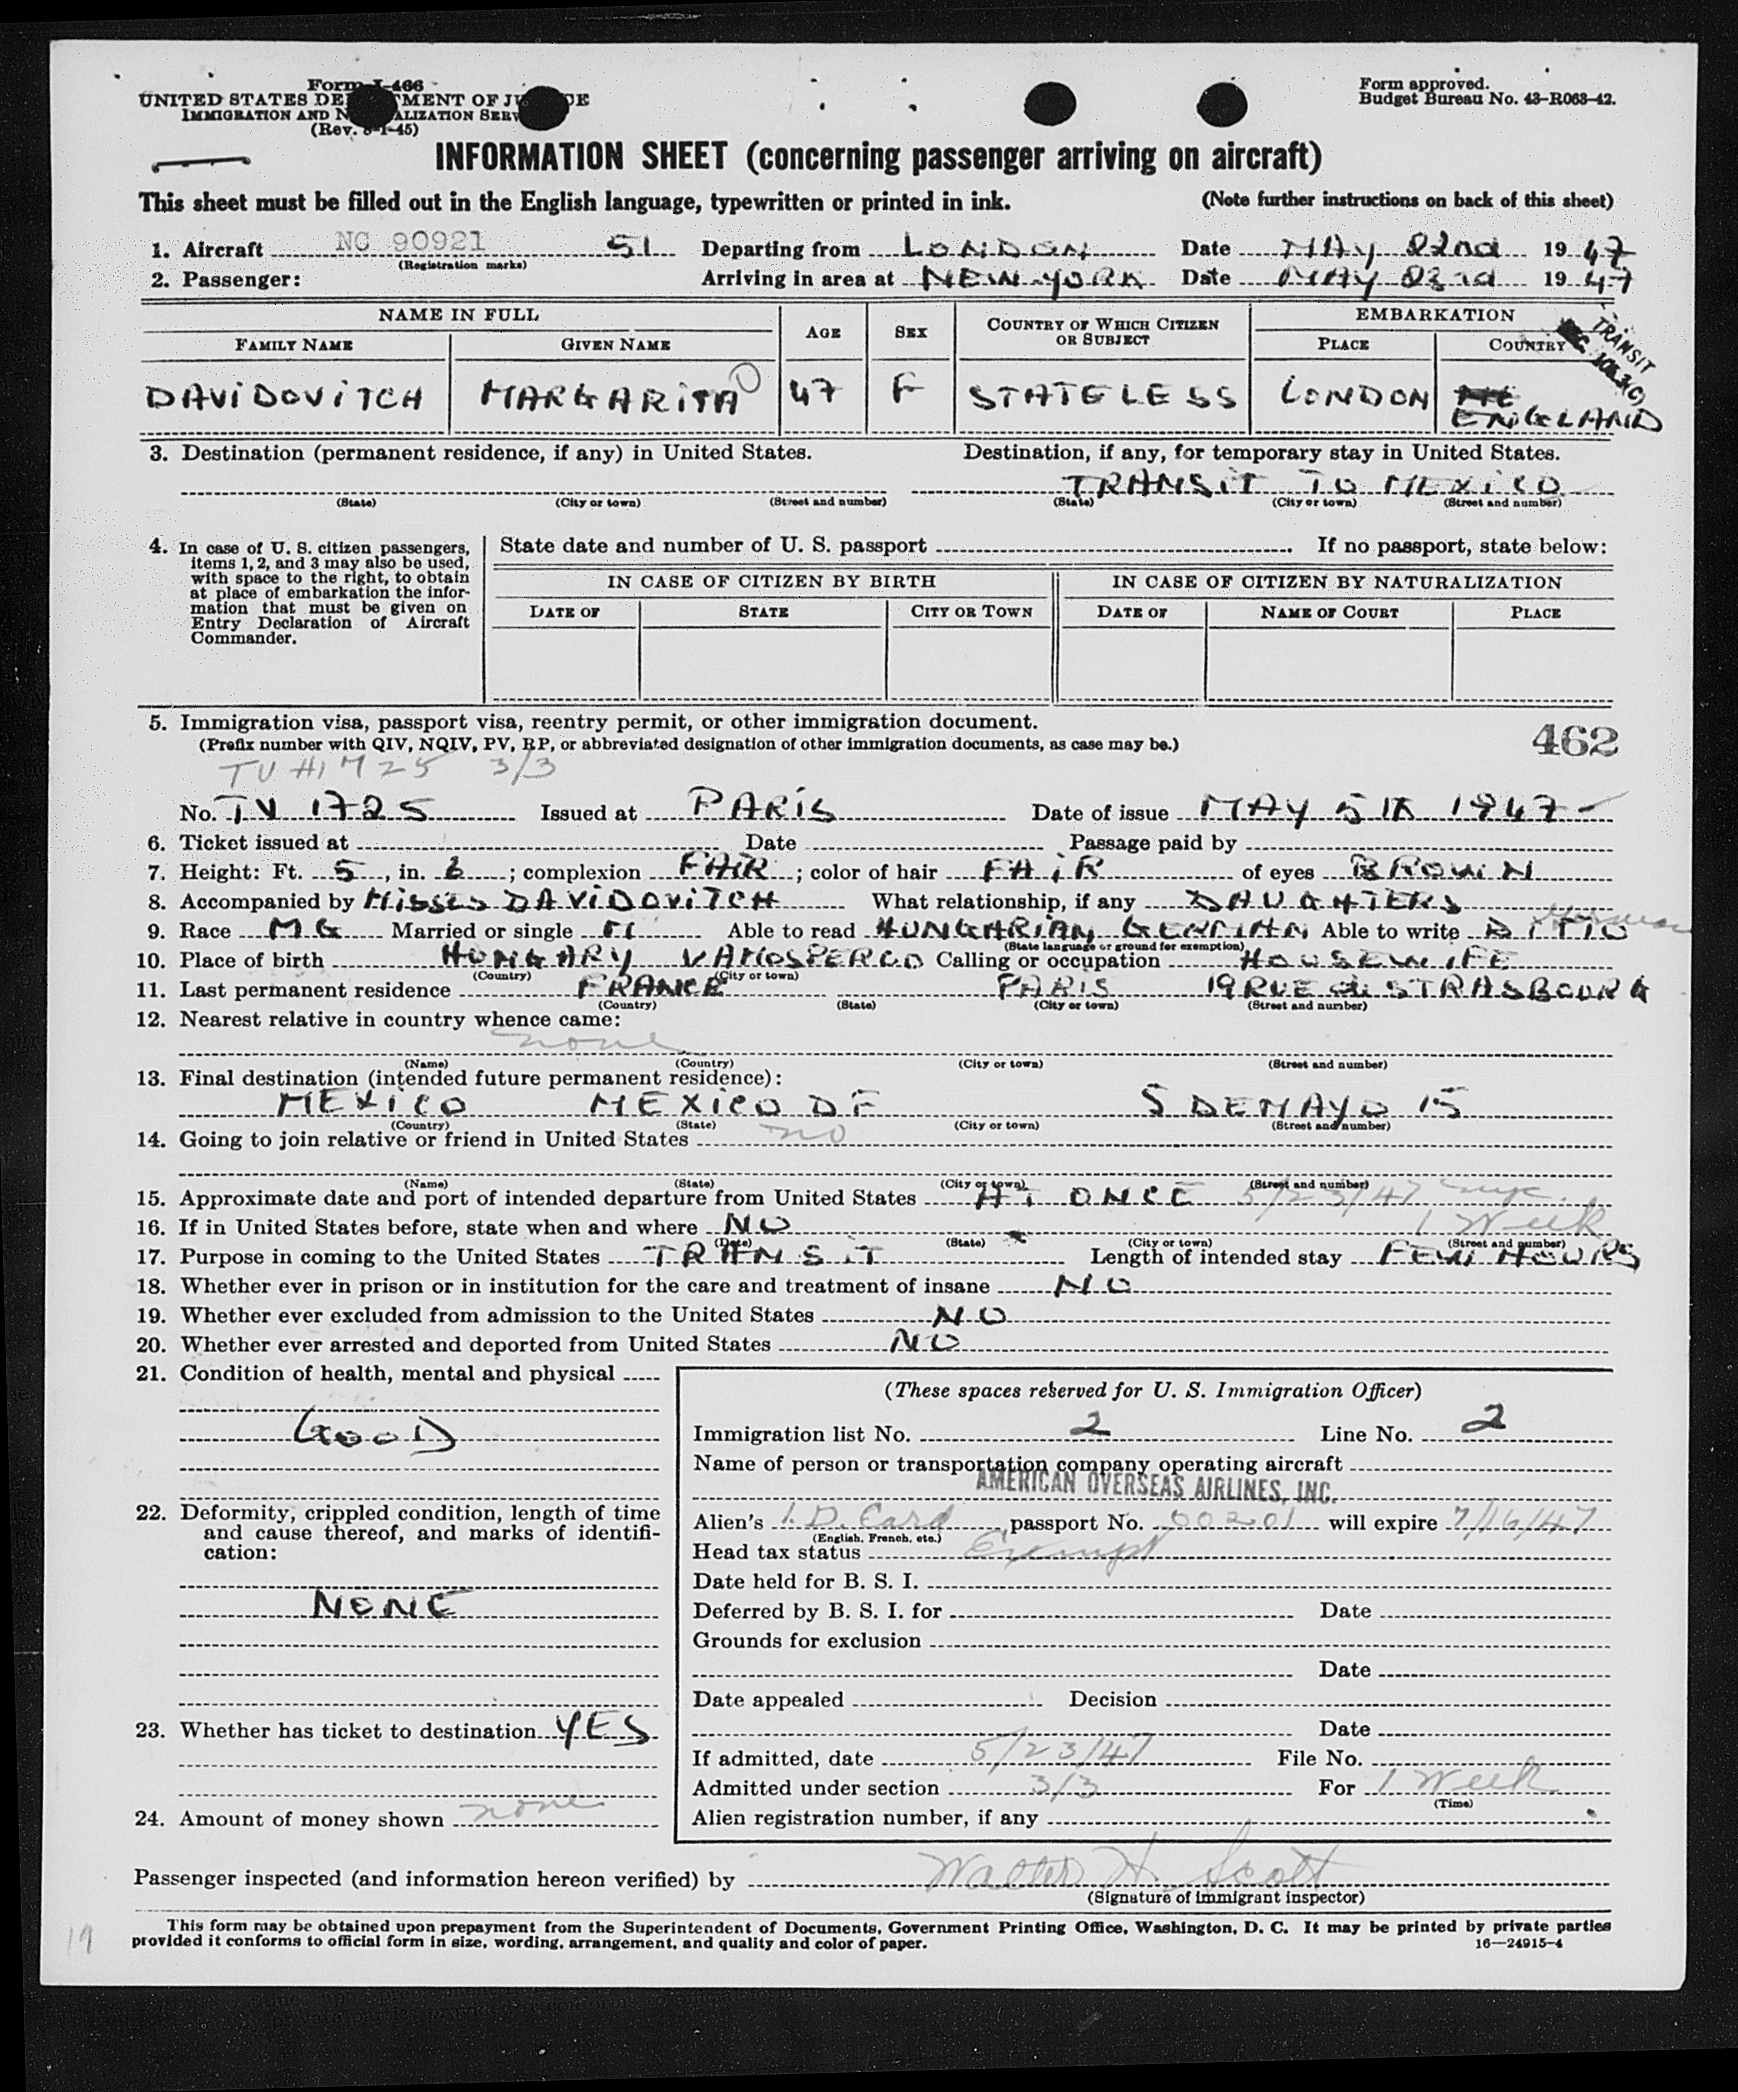 Form I-466
UNITED STATES DE MENT OF JU E
IMMIGRATION AND N ALIZATION SERV
(Rev. 8-1-45)
Form approved.
Budget Bureau No. 43-R063-42.
INFORMATION SHEET (concerning passenger arriving on aircraft)
This sheet must be filled out in the English language, typewritten or printed in ink. (Note further instructions on back of this sheet)
1. Aircraft NC 90921 51 Departing from LONDON Date MAY 22nd 1947
(Registration marks)
2. Passenger: Arriving in area at NEW-YORK Date MAY 23rd 1947
NAME IN FULL AGE SEX COUNTRY OF WHICH CITIZEN OR SUBJECT EMBARKATION
FAMILY NAME GIVEN NAME PLACE COUNTRY
TRANSIT
DAVIDOVITCH MARGARITA 47 F STATELESS LONDON ENGLAND
3. Destination (permanent residence, if any) in United States. Destination, if any, for temporary stay in United States.
TRANSIT TO MEXICO
(State) (City or town) (Street and number) (State) (City or town) (Street and number)
4. In case of U. S. citizen passengers, items 1, 2, and 3 may also be used, with space to the right, to obtain at place of embarkation the information that must be given on Entry Declaration of Aircraft Commander.
State date and number of U. S. passport If no passport, state below:
IN CASE OF CITIZEN BY BIRTH IN CASE OF CITIZEN BY NATURALIZATION
DATE OF STATE CITY OR TOWN DATE OF NAME OF COURT PLACE
5. Immigration visa, passport visa, reentry permit, or other immigration document.
462
(Prefix number with QIV, NQIV, PV, RP, or abbreviated designation of other immigration documents, as case may be.)
TV #1725 3/3
No. TV 1725 Issued at PARIS Date of issue MAY 5th 1947
6. Ticket issued at Date Passage paid by
7. Height: Ft. 5, in. 6; complexion FAIR; color of hair FAIR of eyes BROWN
8. Accompanied by MISSES DAVIDOVITCH What relationship, if any DAUGHTERS
9. Race MG Married or single Able to read HUNGARIAN GERMAN Able to write DITTO German
(State language or ground for exemption)
10. Place of birth HUNGARY VAMOSPERCO Calling or occupation HOUSEWIFE
(Country) (City or town)
11. Last permanent residence FRANCE PARIS 19 RUE de STRASBOURG
(Country) (State) (City or town) (Street and number)
12. Nearest relative in country whence came:
none
(Name) (Country) (City or town) (Street and number)
13. Final destination (intended future permanent residence):
MEXICO MEXICO DF 5 DE MAYO 15
(Country) (State) (City or town) (Street and number)
14. Going to join relative or friend in United States no
(Name) (State) (City or town) (Street and number)
15. Approximate date and port of intended departure from United States AT ONCE 5/23/47 nyc.
16. If in United States before, state when and where NO 1 Week
(Date) (State) (City or town) (Street and number)
17. Purpose in coming to the United States TRANSIT Length of intended stay FEW HOURS
18. Whether ever in prison or in institution for the care and treatment of insane NO
19. Whether ever excluded from admission to the United States NO
20. Whether ever arrested and deported from United States NO
21. Condition of health, mental and physical
GOOD
22. Deformity, crippled condition, length of time and cause thereof, and marks of identification:
NONE
23. Whether has ticket to destination YES
24. Amount of money shown none
(These spaces reserved for U. S. Immigration Officer)
Immigration list No. 2 Line No. 2
Name of person or transportation company operating aircraft
AMERICAN OVERSEAS AIRLINES, INC.
Alien's I.D. Card passport No. 00201 will expire 7/16/47
(English, French, etc.)
Head tax status Exempt
Date held for B. S. I.
Deferred by B. S. I. for Date
Grounds for exclusion
Date
Date appealed Decision
Date
If admitted, date 5/23/47 File No.
Admitted under section 3/3 For 1 Week
(Time)
Alien registration number, if any
Passenger inspected (and information hereon verified) by Walter H. Scott
(Signature of immigrant inspector)
19
This form may be obtained upon prepayment from the Superintendent of Documents, Government Printing Office, Washington, D. C. It may be printed by private parties
provided it conforms to official form in size, wording, arrangement, and quality and color of paper. 16—24915-4